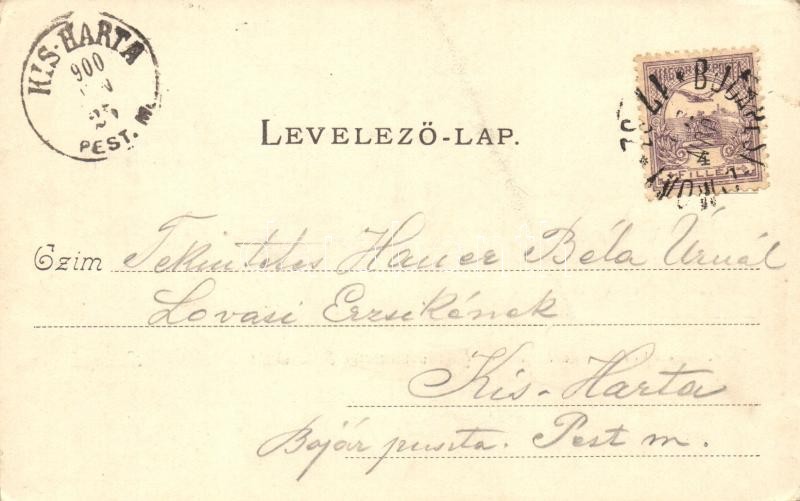 KIS-HARTA
900
25
PEST. M.
LEVELEZŐ-LAP.
FILLÉR
Czim Tekintetes Hauer Béla Úrnál
Lovasi Erzsikének
Kis-Harta
Bojár puszta. Pest m.